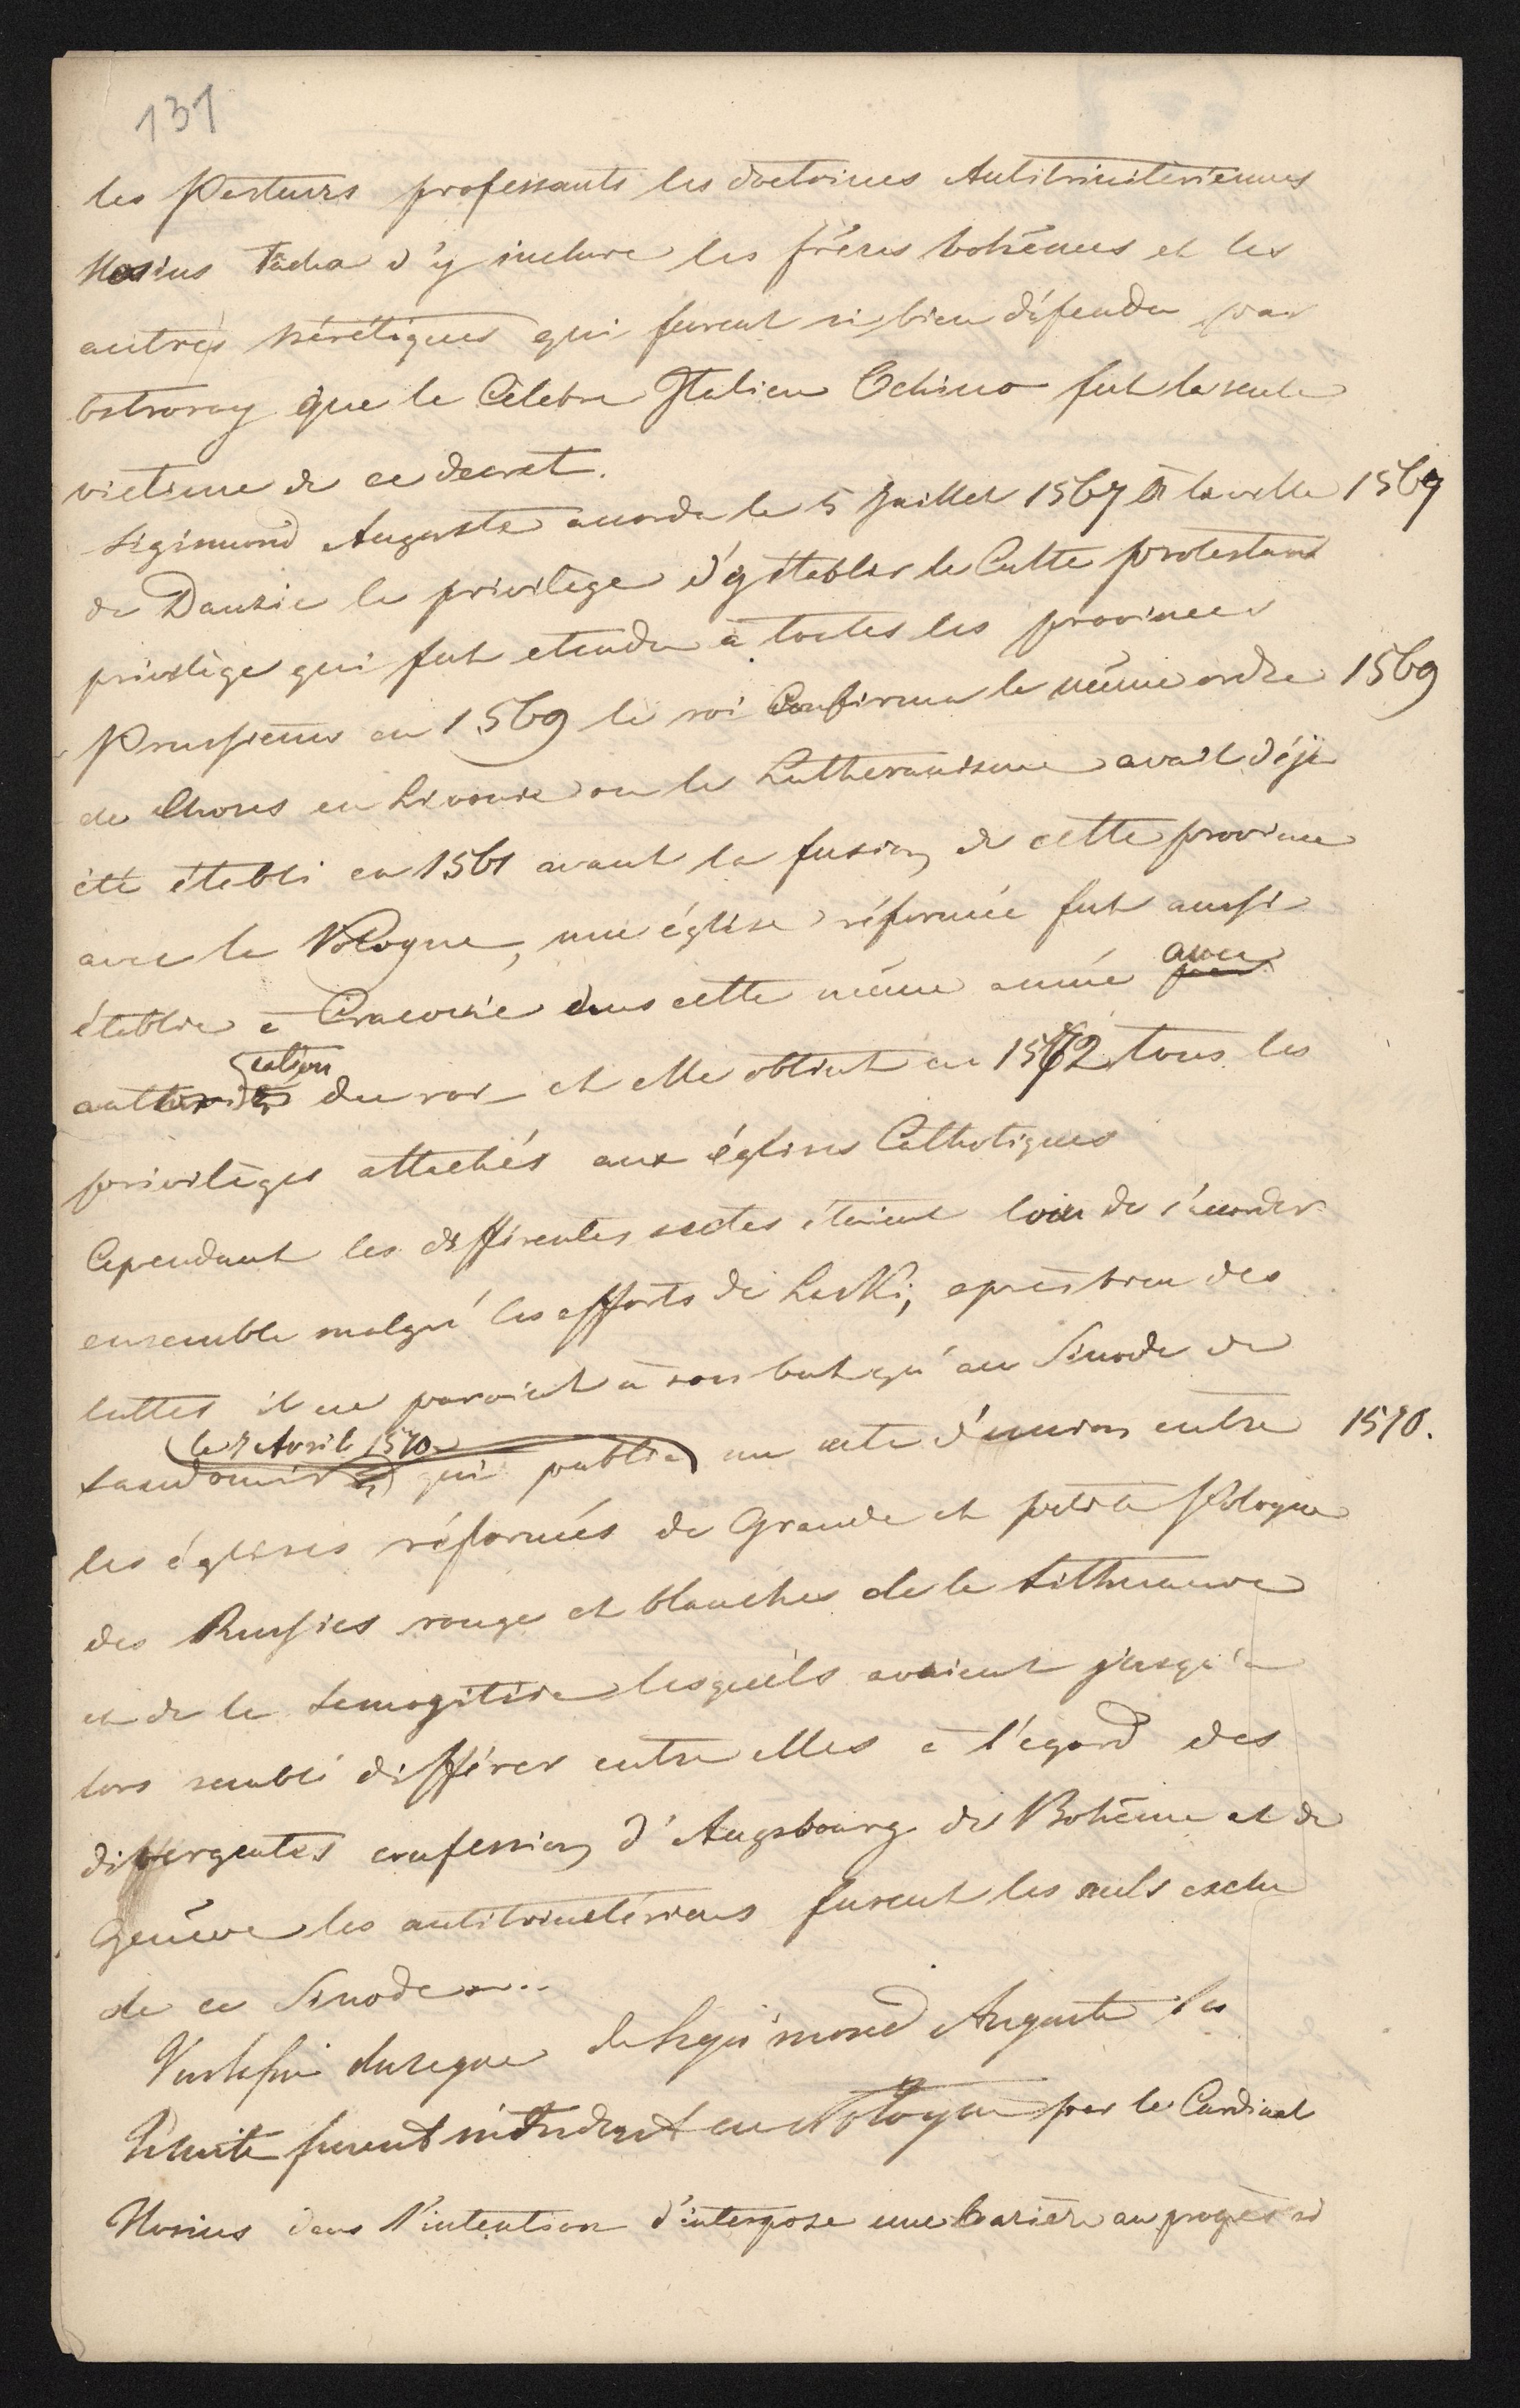 131
les Pasteurs professants les doctrines Antitrinitériennes
Hosius tâcha d'y inclure les frères bohémes et les
autres hérétiques qui furent si bien défendu par
Ostrorog que le Célebre Italien Ochino fut la seule
victime de ce decret.
Sigismond Auguste accorda le 5 Juillet 1567 à la ville 1567
de Danzic le privilège d'y établir le Culte protestant
privilège qui fut etendu à toutes les provinces
Prussiennes en 1569 le roi Confirma le même ordre 1569
de Choses en Livonie ou le Lutheranisme avait déja
été établi en 1561 avant la fusion de cette province
avec la Pologne, une église réformée fut aussi
établie à Cracovie dans cette même année avec
authorisation du roi et elle obtint en 1572 tous les
privilèges attachés aux églises Catholiques
Cependant les differentes sectes étaient loin de s'accorder
ensemble malgré les efforts de Laski, après bien des
luttes il ne parvint à son but qu'au Sinode de
Sandomir le 7 Avril 1570 qui publia un acte d'union entre 1570.
les églises réformés de Grande et petite Pologne
des Russies rouge et blanches de la Lithuanie
et de la Samogitie lesquels avaient jusqu'a
lors semblé différer entre elles à l'égard des
differgentes confession d'Augsbourg de Bohème et de
Genève les antitrinitériens furent les seuls exclu
de ce Sinode
Vers la fin du regne de Sigismond Auguste les
Jésuite furent introduit en Pologne par le Cardinal
Hosius dans l'intention d'interpose une barière au progrès